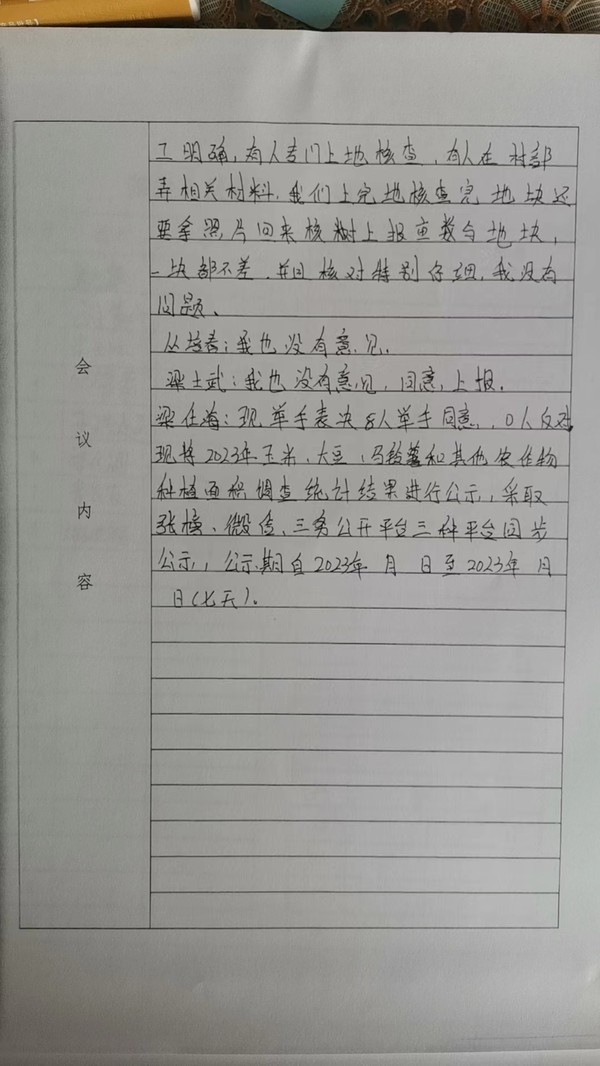 会议内容
工明确，有人专门上地核查，有人在村部
弄相关材料，我们上完地核查完地块还
要拿照片回来核对上报亩数与地块，
一块都不差，并且核对特别仔细，我没有
问题。
丛培春：我也没有意见。
梁士武：我也没有意见，同意上报。
梁任海：现举手表决8人举手同意，0人反对
现将2023年玉米、大豆、马铃薯和其他农作物
种植面积调查统计结果进行公示，采取
张榜、微信、三务公开平台三种平台同步
公示，公示期自2023年 月 日至2023年 月
日(七天)。